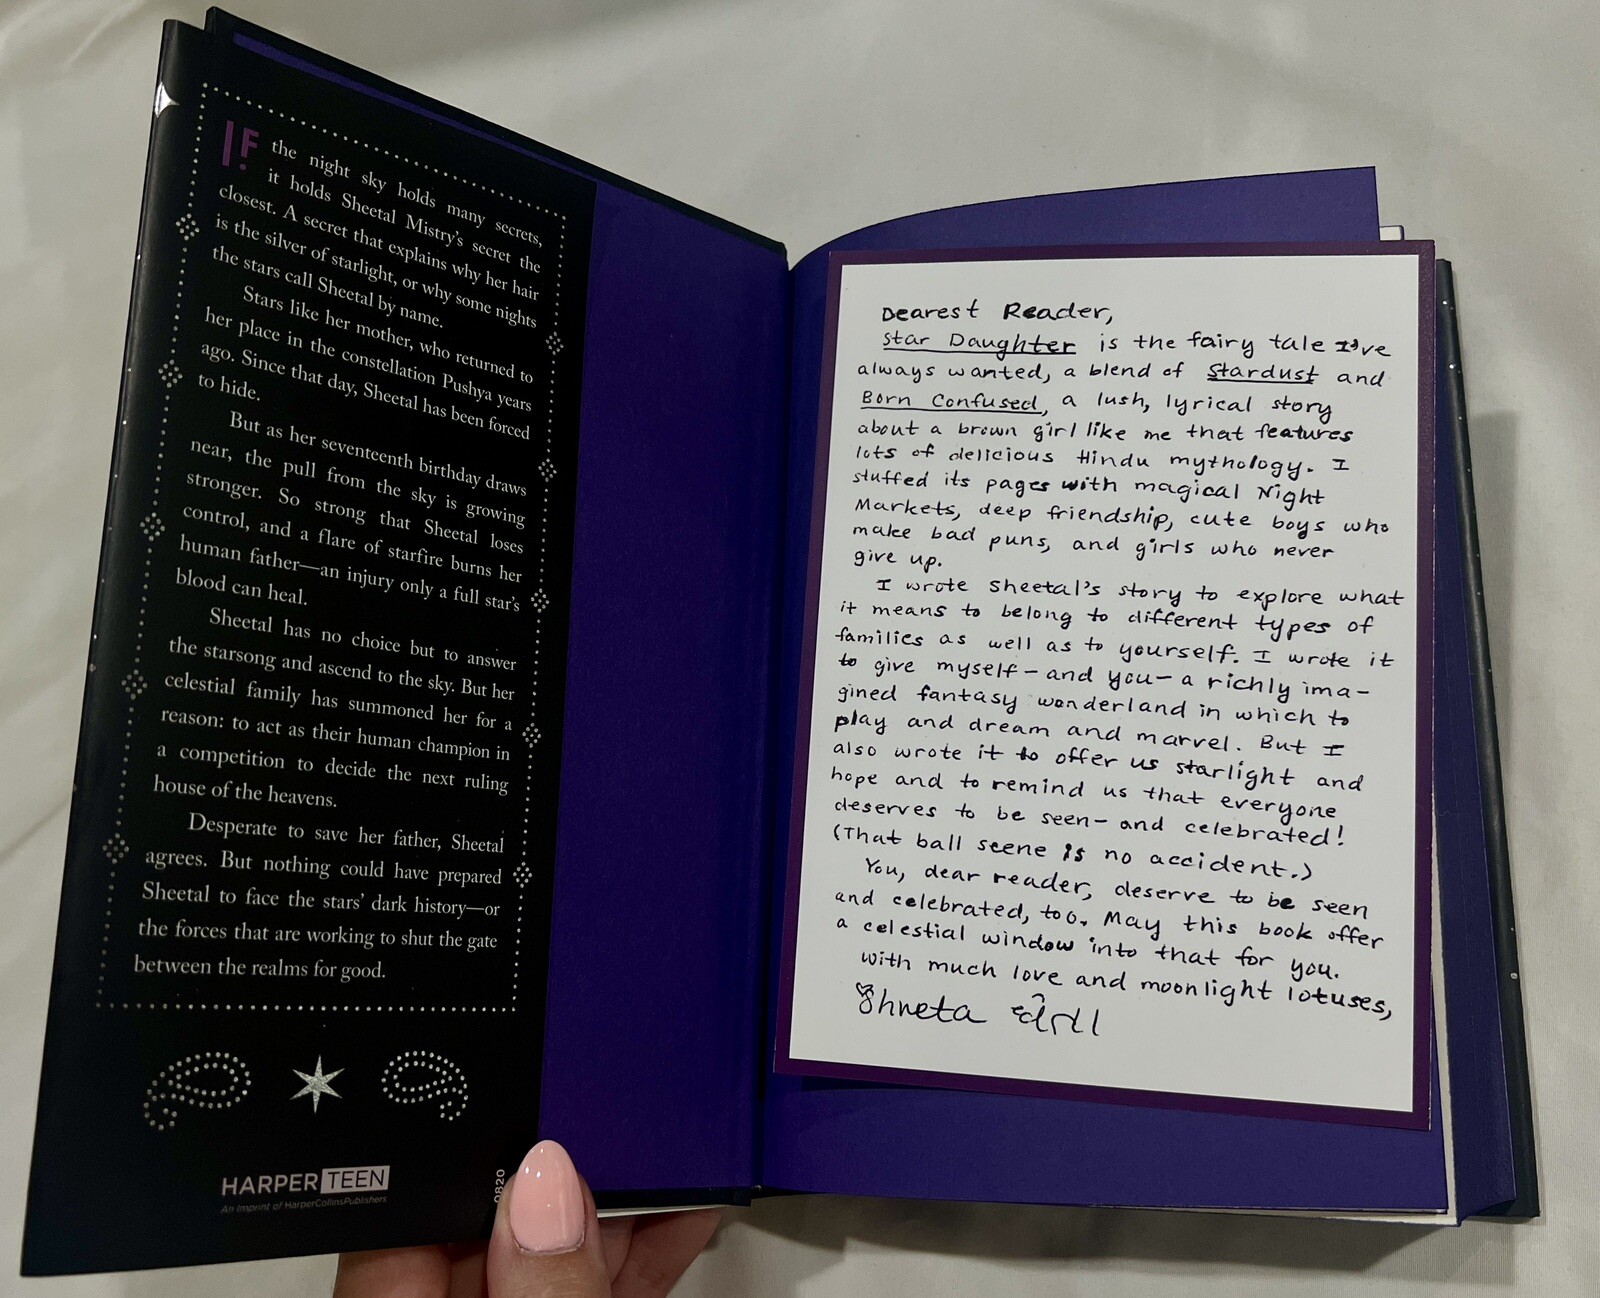 IF the night sky holds many secrets,
it holds Sheetal Mistry's secret the
closest. A secret that explains why her hair
is the silver of starlight, or why some nights
the stars call Sheetal by name.
Stars like her mother, who returned to
her place in the constellation Pushya years
ago. Since that day, Sheetal has been forced
to hide.
But as her seventeenth birthday draws
near, the pull from the sky is growing
stronger. So strong that Sheetal loses
control, and a flare of starfire burns her
human father—an injury only a full star's
blood can heal.
Sheetal has no choice but to answer
the starsong and ascend to the sky. But her
celestial family has summoned her for a
reason: to act as their human champion in
a competition to decide the next ruling
house of the heavens.
Desperate to save her father, Sheetal
agrees. But nothing could have prepared
Sheetal to face the stars' dark history—or
the forces that are working to shut the gate
between the realms for good.
HARPER TEEN
An Imprint of HarperCollinsPublishers
0820
Dearest Reader,
Star Daughter is the fairy tale I've
always wanted, a blend of Stardust and
Born Confused, a lush, lyrical story
about a brown girl like me that features
lots of delicious Hindu mythology. I
stuffed its pages with magical Night
Markets, deep friendship, cute boys who
make bad puns, and girls who never
give up.
I wrote Sheetal's story to explore what
it means to belong to different types of
families as well as to yourself. I wrote it
to give myself – and you – a richly ima-
gined fantasy wonderland in which to
play and dream and marvel. But I
also wrote it to offer us starlight and
hope and to remind us that everyone
deserves to be seen – and celebrated!
(That ball scene is no accident.)
You, dear reader, deserve to be seen
and celebrated, too. May this book offer
a celestial window into that for you.
with much love and moonlight lotuses,
Shveta